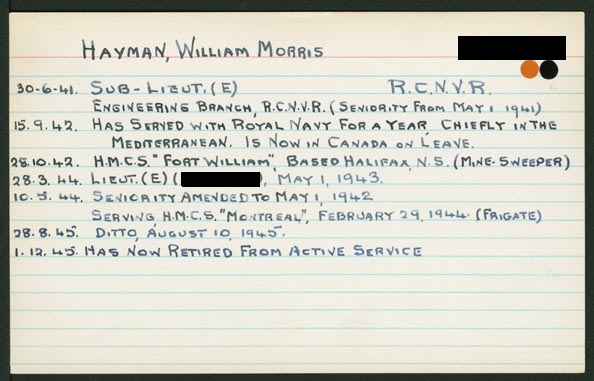 HAYMAN, WILLIAM MORRIS
30-6-41. SUB-LIEUT. (E) R.C.N.V.R.
ENGINEERING BRANCH, R.C.N.V.R. (SENIORITY FROM MAY 1 1941)
15.9.42. HAS SERVED WITH ROYAL NAVY FOR A YEAR CHIEFLY IN THE
MEDITERRANEAN. IS NOW IN CANADA ON LEAVE.
28.10.42. H.M.C.S. "FORT WILLIAM", BASED HALIFAX, N.S. (MINE-SWEEPER)
28.3.44. LIEUT. (E) ( ), MAY 1, 1943.
10.5.44. SENIORITY AMENDED TO MAY 1, 1942
SERVING H.M.C.S. "MONTREAL", FEBRUARY 29, 1944. (FRIGATE)
28.8.45. DITTO, AUGUST 10, 1945.
1.12.45. HAS NOW RETIRED FROM ACTIVE SERVICE